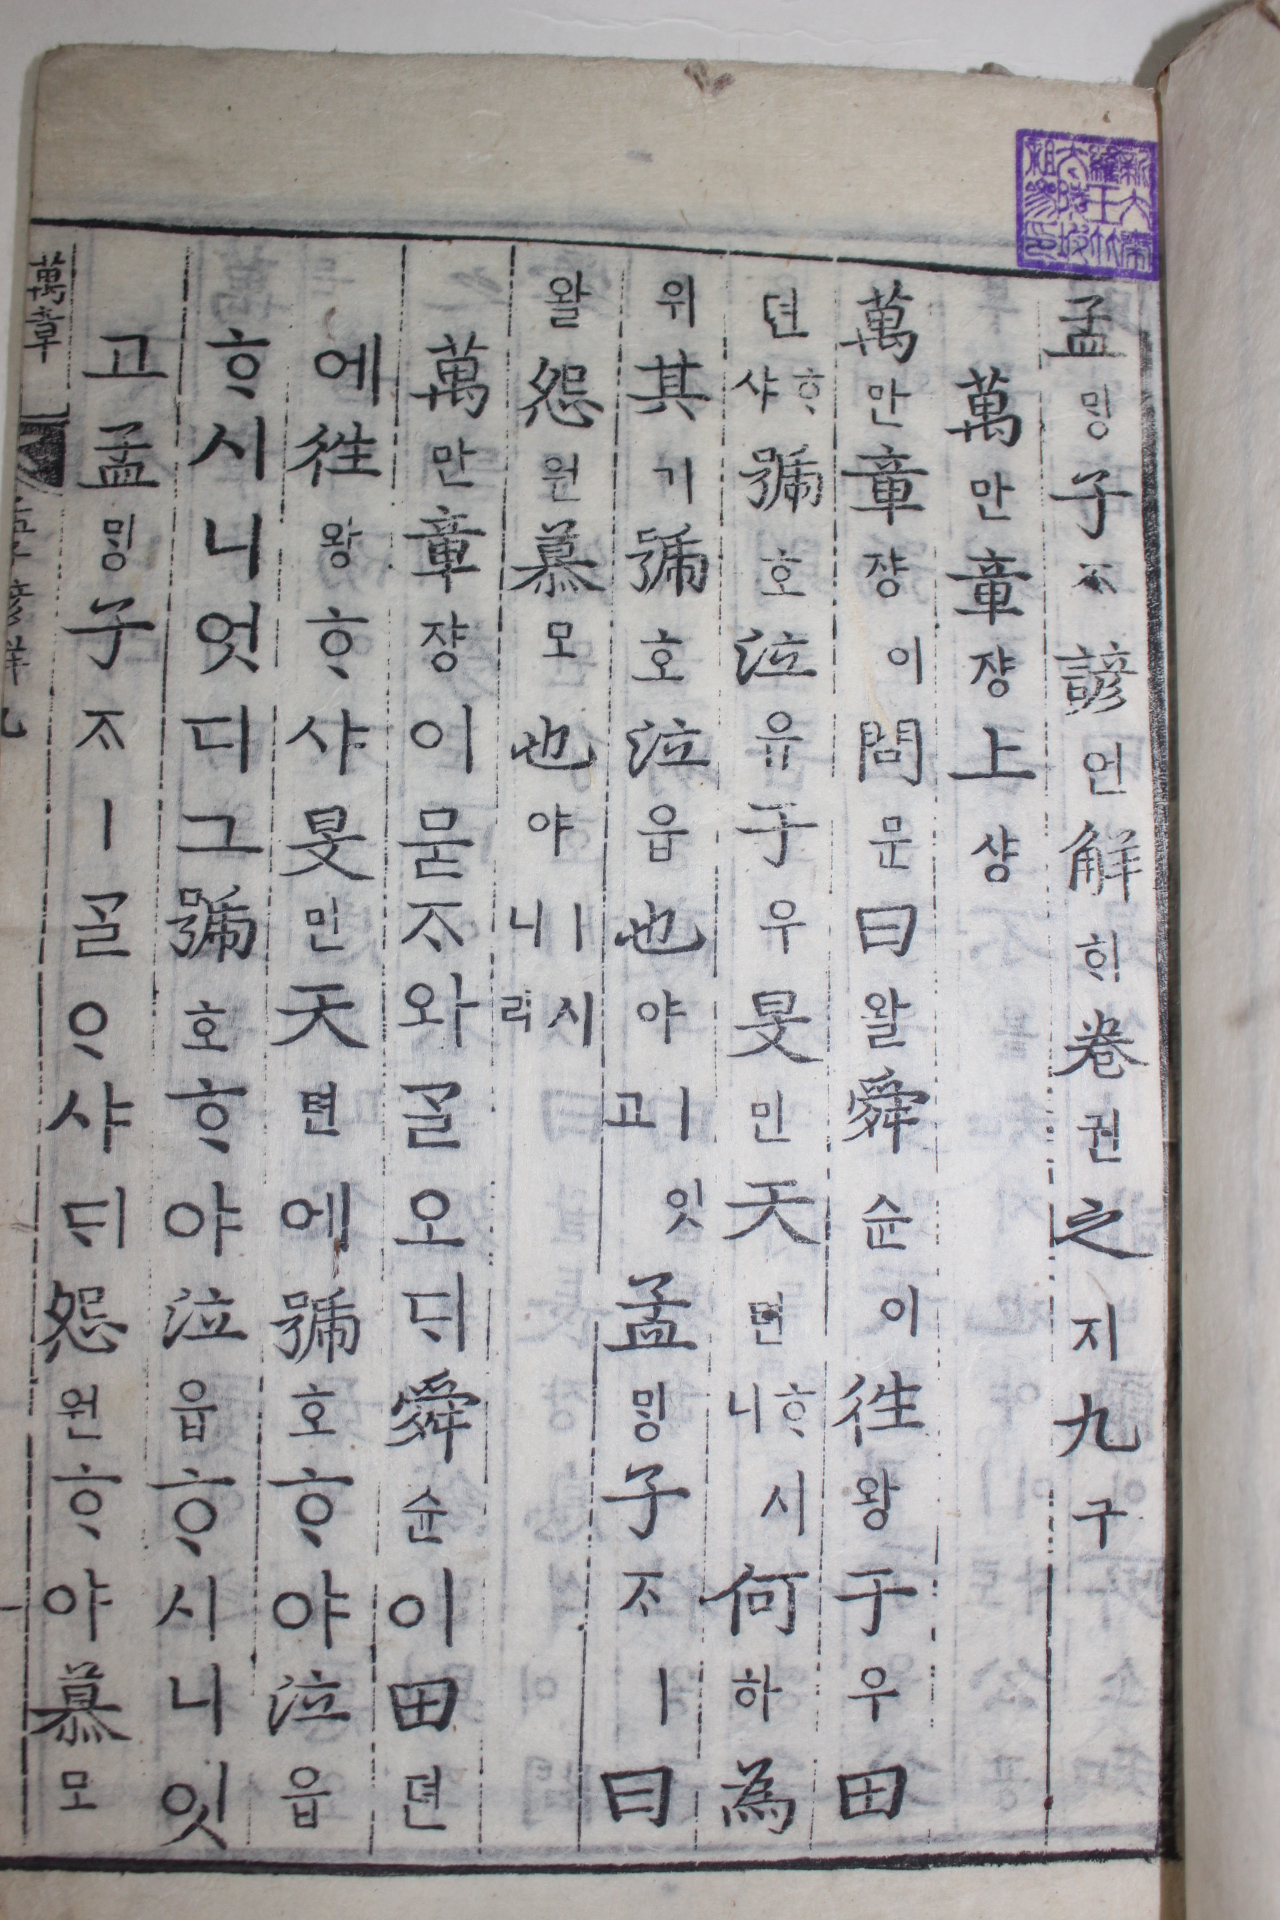 孟ᄆᆡᆼ子ᄌᆞ諺언解ᄒᆡ卷권之지九구
萬만章쟝上샹
萬만章쟝이問문曰왈舜슌이往왕于우田
뎐ᄒᆞ샤號호泣읍于우旻민天텬ᄒᆞ시니何하為
위其기號호泣읍也야ㅣ잇고孟ᄆᆡᆼ子ᄌᆞㅣ曰
왈怨원慕모也야ㅣ시니리
萬만章쟝이묻ᄌᆞ와ᄀᆞᆯ오ᄃᆡ舜슌이田뎐
에往왕ᄒᆞ샤旻민天텬에號호ᄒᆞ야泣읍
ᄒᆞ시니엇디그號호ᄒᆞ야泣읍ᄒᆞ시니잇
고孟ᄆᆡᆼ子ᄌᆞㅣᄀᆞᆯᄋᆞ샤ᄃᆡ怨원ᄒᆞ야慕모
萬章